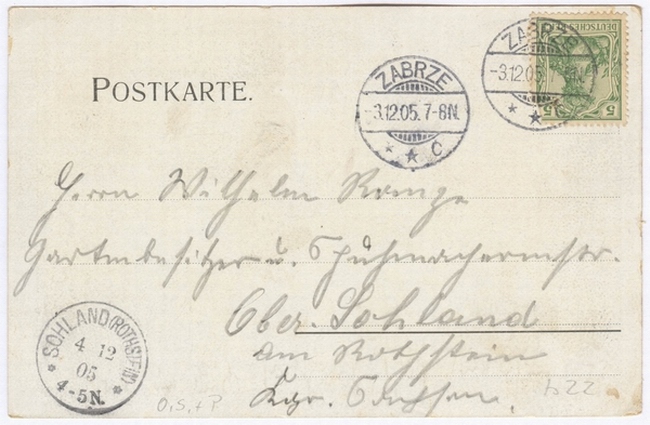 POSTKARTE.
ZABRZE
-3.12.05.7-8N.
* * C
ZABRZE
-3.12.05. 8N.
DEUTSCHES REICH
5
5
Herrn Wilhelm Rompe
Gartenbesitzer u. Schuhmachermstr.
Ober-Sohland
am Rothstein
Kgr. Sachsen.
SOHLAND (ROTHSTEIN)
4 12
05
4-5N.
O,S,+P
b22